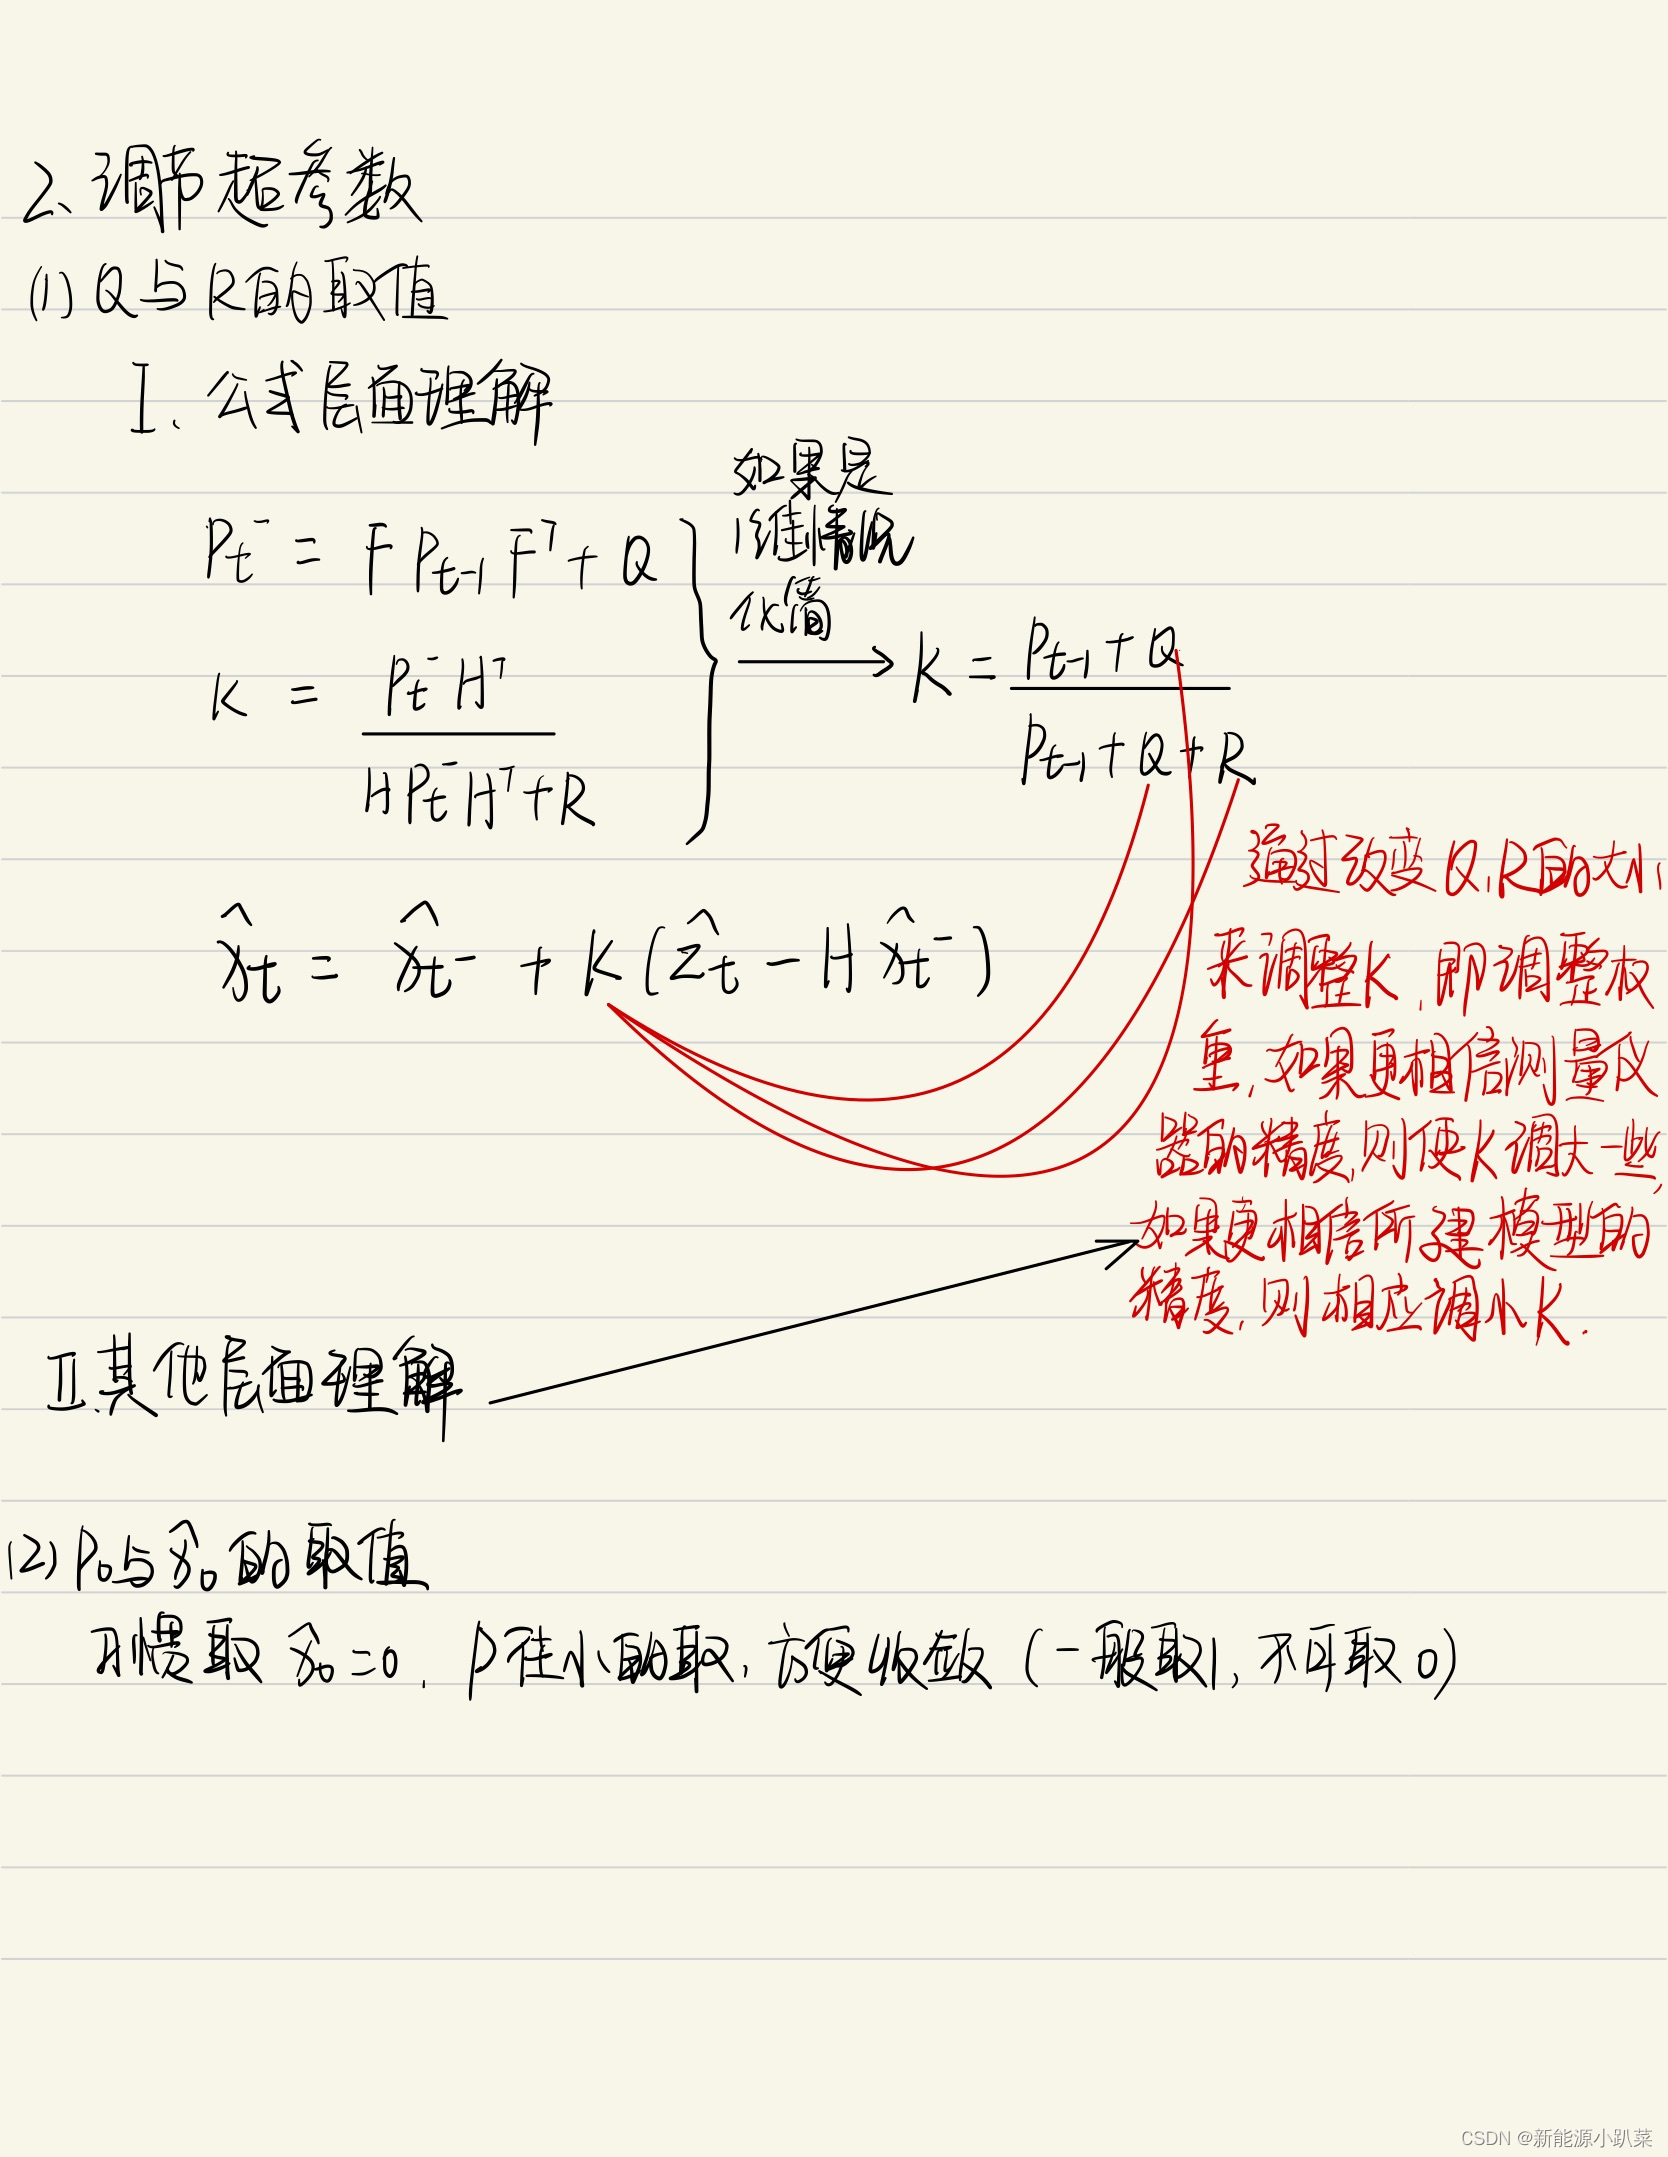 2、调节超参数
(1) Q与R的取值
I. 公式层面理解
如果是
1维情况
化简
P_t^- = F P_{t-1} F^T + Q
K = \frac{P_t^- H^T}{H P_t^- H^T + R}
K = \frac{P_{t-1} + Q}{P_{t-1} + Q + R}
\hat{x}_t = \hat{x}_t^- + K(\hat{z}_t - H\hat{x}_t^-)
通过改变Q,R的大小,
来调整K,即调整权
重,如果更相信测量仪
器的精度,则使K调大一些,
如果更相信所建模型的
精度,则相应调小K.
II.其他层面理解
(2) P_0与\hat{x}_0的取值
习惯取 \hat{x}_0=0, P往小的取,方便收敛(一般取1,不可取0)
CSDN @新能源小趴菜